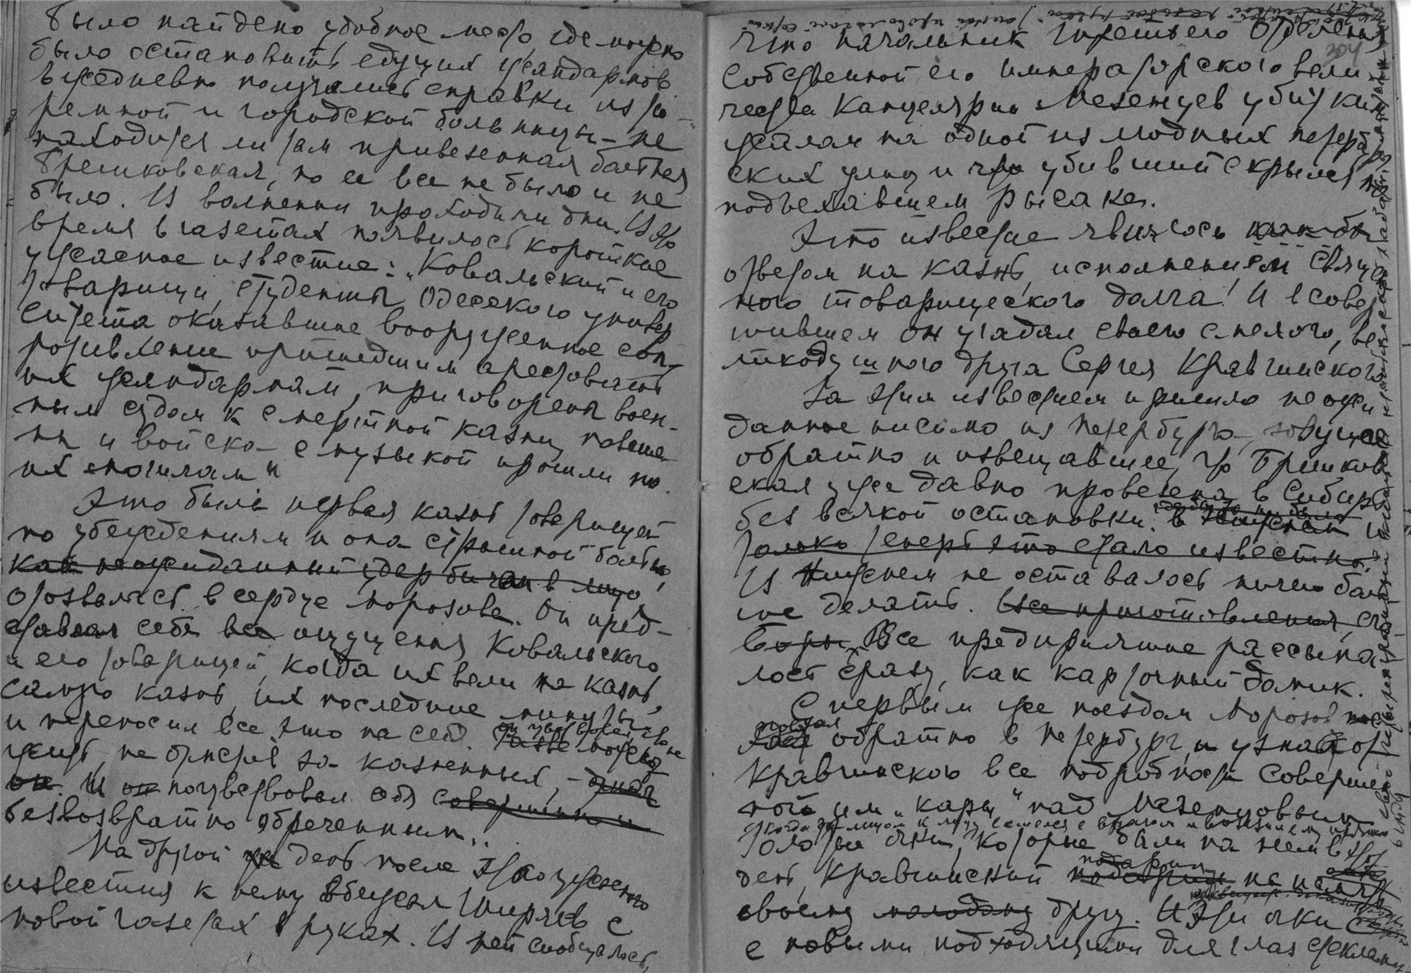 было найдено удобное место, где можно
было остановить едущих жандармов.
Ежедневно получались справки из тю-
ремной и городской больницы — не
находится ли там привезенная больная
Брешковская, но ее все не было и не
было. В волнении проходили дни. В это
время в газетах появилось короткое
ужасное известие: "Ковальский и его
товарищи, студенты Одесского универ
ситета оказавшие вооруженное соп-
ротивление пришедшим арестовать
их жандармам, приговорены воен-
ным судом к смертной казни, повеше
ны и войска с музыкой прошли по
их могилам"
Это была первая казнь товарищей
по убеждениям и она страшной болью
как неожиданный удар бичом в лицо,
отозвалась в сердце Морозова. Он пред-
ставлял себе все ощущения Ковальского
и его товарищей, когда их вели на казнь,
самую казнь, их последние минуты
и переносил все это на себя.
жить, не отомстив за казненных, —
он. И он почувствовал себя совершенно
безвозвратно обреченным.
На другой день после этого ужасного
известия к нему вбежал Гнирясь с
новой газетой в руках. В ней сообщалось,
что начальник третьего отделения
собственной его императорского вели
чества Канцелярии Мезенцев убит кин
жалом на одной из людных петербург
ских улиц и что убивший скрылся на
подъехавшем рысаке.
Это известие явилось как бы
ответом на казнь, исполнением священ
ного товарищеского долга! И в совер
шившем он угадал своего смелого, ве
ликодушного друга Сергея Кравчинского.
За этим известием пришло неожи
данное письмо из Петербурга, зовущее
обратно и извещавшее, что Брешков
ская уже давно провезена в Сибирь
без всякой остановки.
только теперь это стало известно.
В Нижнем не оставалось ничего бол
ше делать. Все приготовления,
Все предприятие рассыпа
лось сразу, как карточный домик.
С первым же поездом Морозов
поехал обратно в Петербург, и узнал от
Кравчинского все подробности соверше
ной им "кары" над Мезенцовым.
очки, которые были на нем в этот
день, Кравчинский подарил на память
своему молодому другу. И эти очки
с новыми подходящими для глаз стеклами